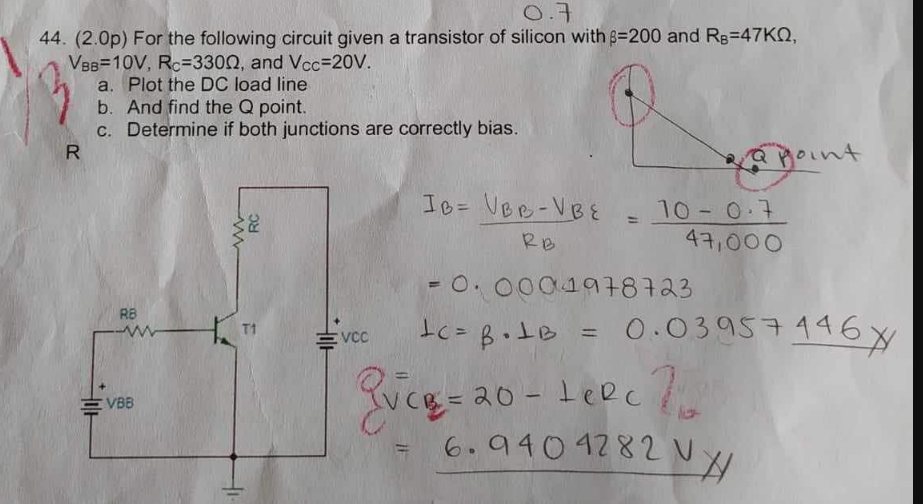 0.7
44. (2.0p) For the following circuit given a transistor of silicon with β=200 and RB=47KΩ,
VBB=10V, RC=330Ω, and VCC=20V.
a. Plot the DC load line
b. And find the Q point.
c. Determine if both junctions are correctly bias.
R
Q point
IB = VBB - VBE / RB = 10 - 0.7 / 47,000
= 0.0001978723
IC = β · IB = 0.03957446
VCB = 20 - IcRc
= 6.9404282 V
RC
RB
T1
+
VCC
+
VBB